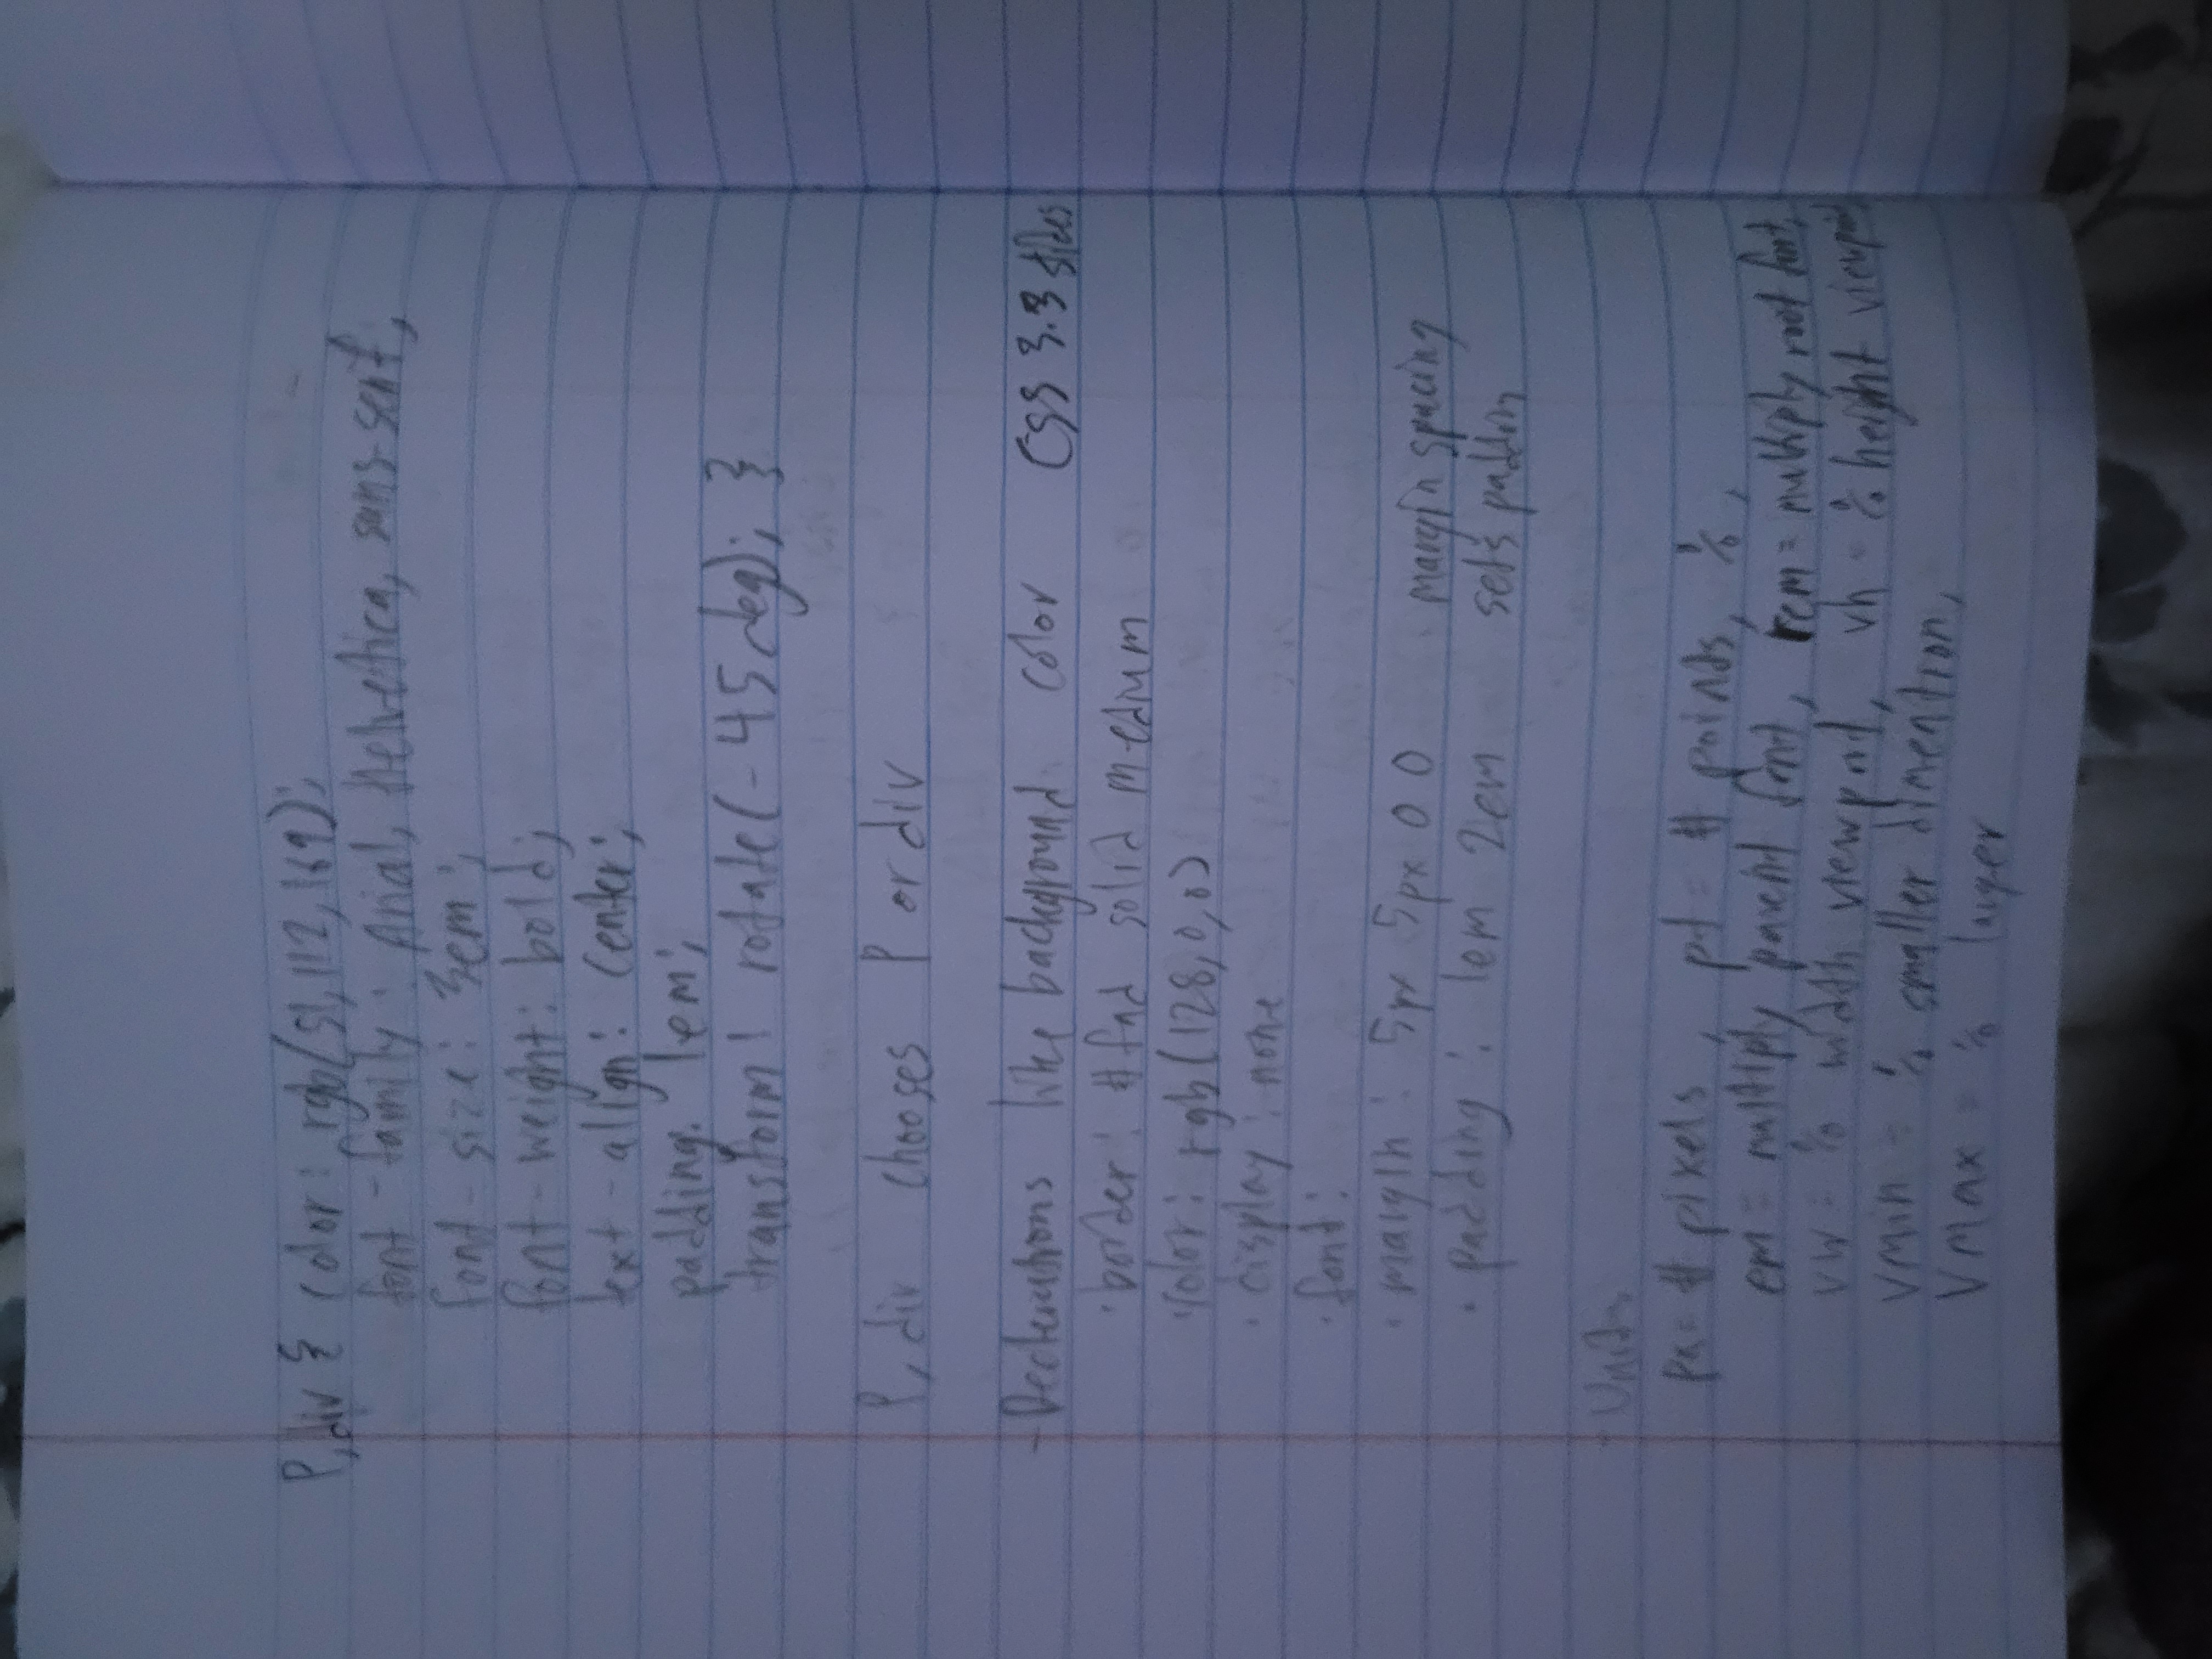 P, div { color: rgb(51, 112, 169);
font-family: Arial, Helvetica, sans-serif,
font-size: 3em;
font-weight: bold;
text-align: center;
padding. 1em;
transform: rotate(-45deg); }
P, div chooses P or div
- Declerations like background color CSS 3.3 slides
· border: #fad solid medium
· color: rgb(128,0,0)
· display: none
· font:
· margin: 5px 5px 0 0 · margin spacing
· padding: 1em 2em sets paddin
- Units
px = # pixels, pt = # points, %,
em = multiply parent font, rem = multiply root font,
vw = % width viewport, vh = % height viewport
vmin = % smaller dimention,
vmax = % larger